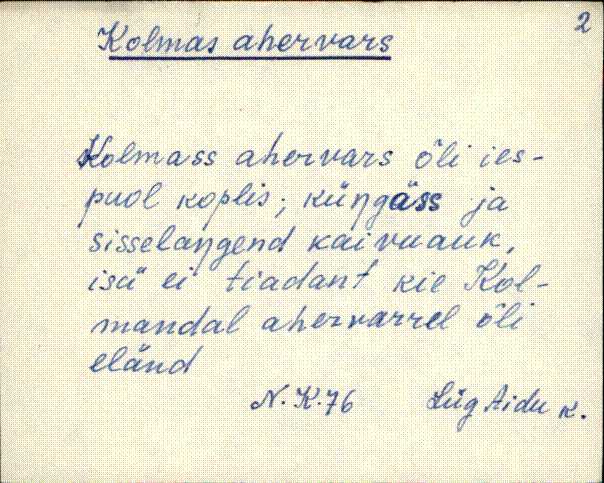 2
Kolmas ahervars
Kolmass ahervars õli ies-
puol koplis; küŋgäss ja
sisselaŋgend kaivuauk,
isä ei tiadant kie Kol-
mandal ahervarrel õli
eländ
N.K.76 Lüg Aidu k.